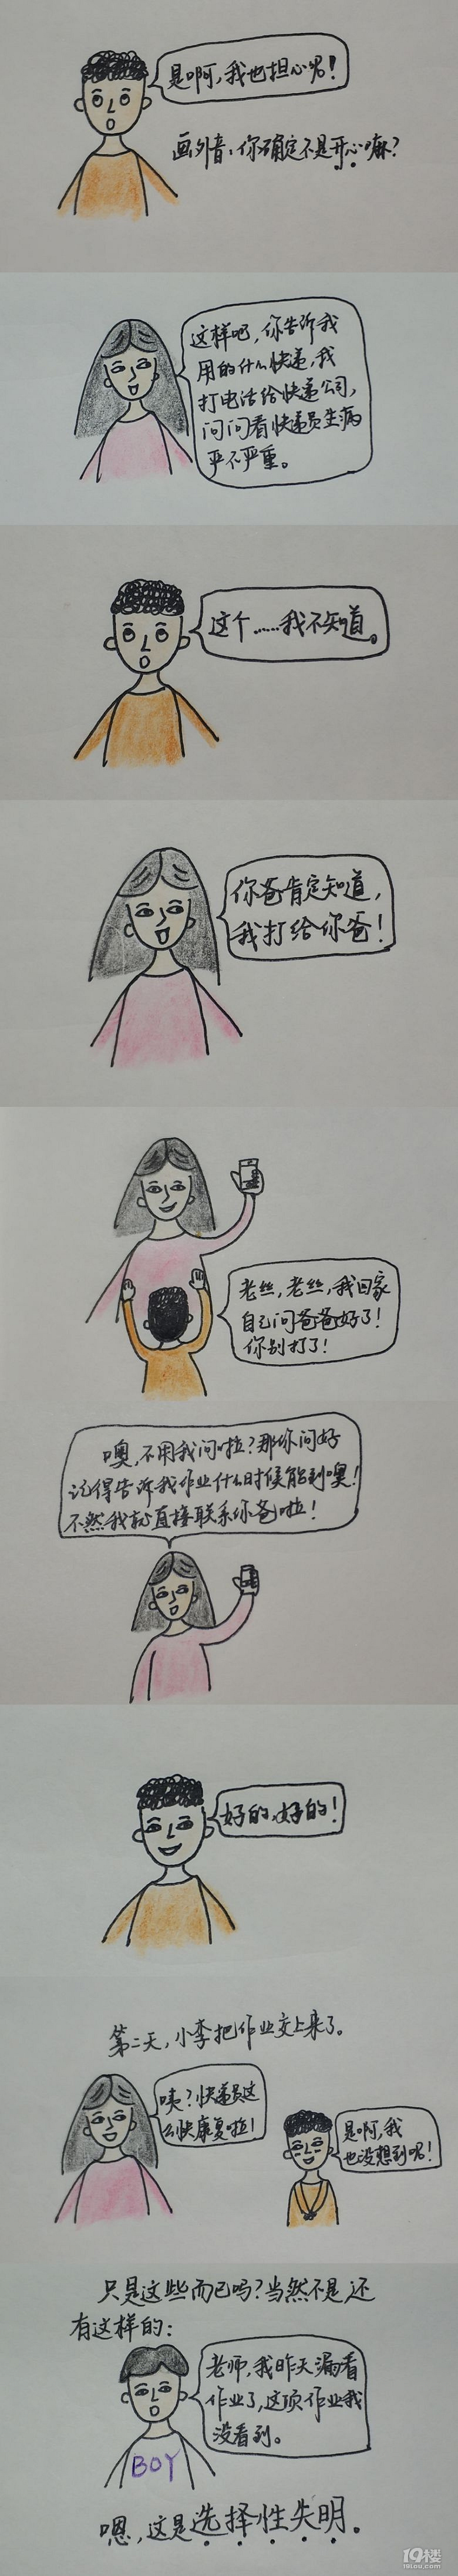 是啊,我也担心呢!
画外音:你确定不是开心嘛?
这样吧,你告诉我
用的什么快递,我
打电话给快递公司,
问问看快递员生病
严不严重。
这个……我不知道。
你爸肯定知道,
我打给你爸!
老丝,老丝,我回家
自己问爸爸好了!
你别打了!
噢,不用我问啦?那你问好
记得告诉我作业什么时候能到噢!
不然我就直接联系你爸啦!
好的,好的!
第二天,小李把作业交上来了。
咦?快递员这
么快康复啦!
是啊,我
也没想到呢!
只是这些而已吗?当然不是,还
有这样的:
老师,我昨天漏看
作业了,这项作业我
没看到。
BOY
嗯,这是选择性失明。
19楼
19lou.com